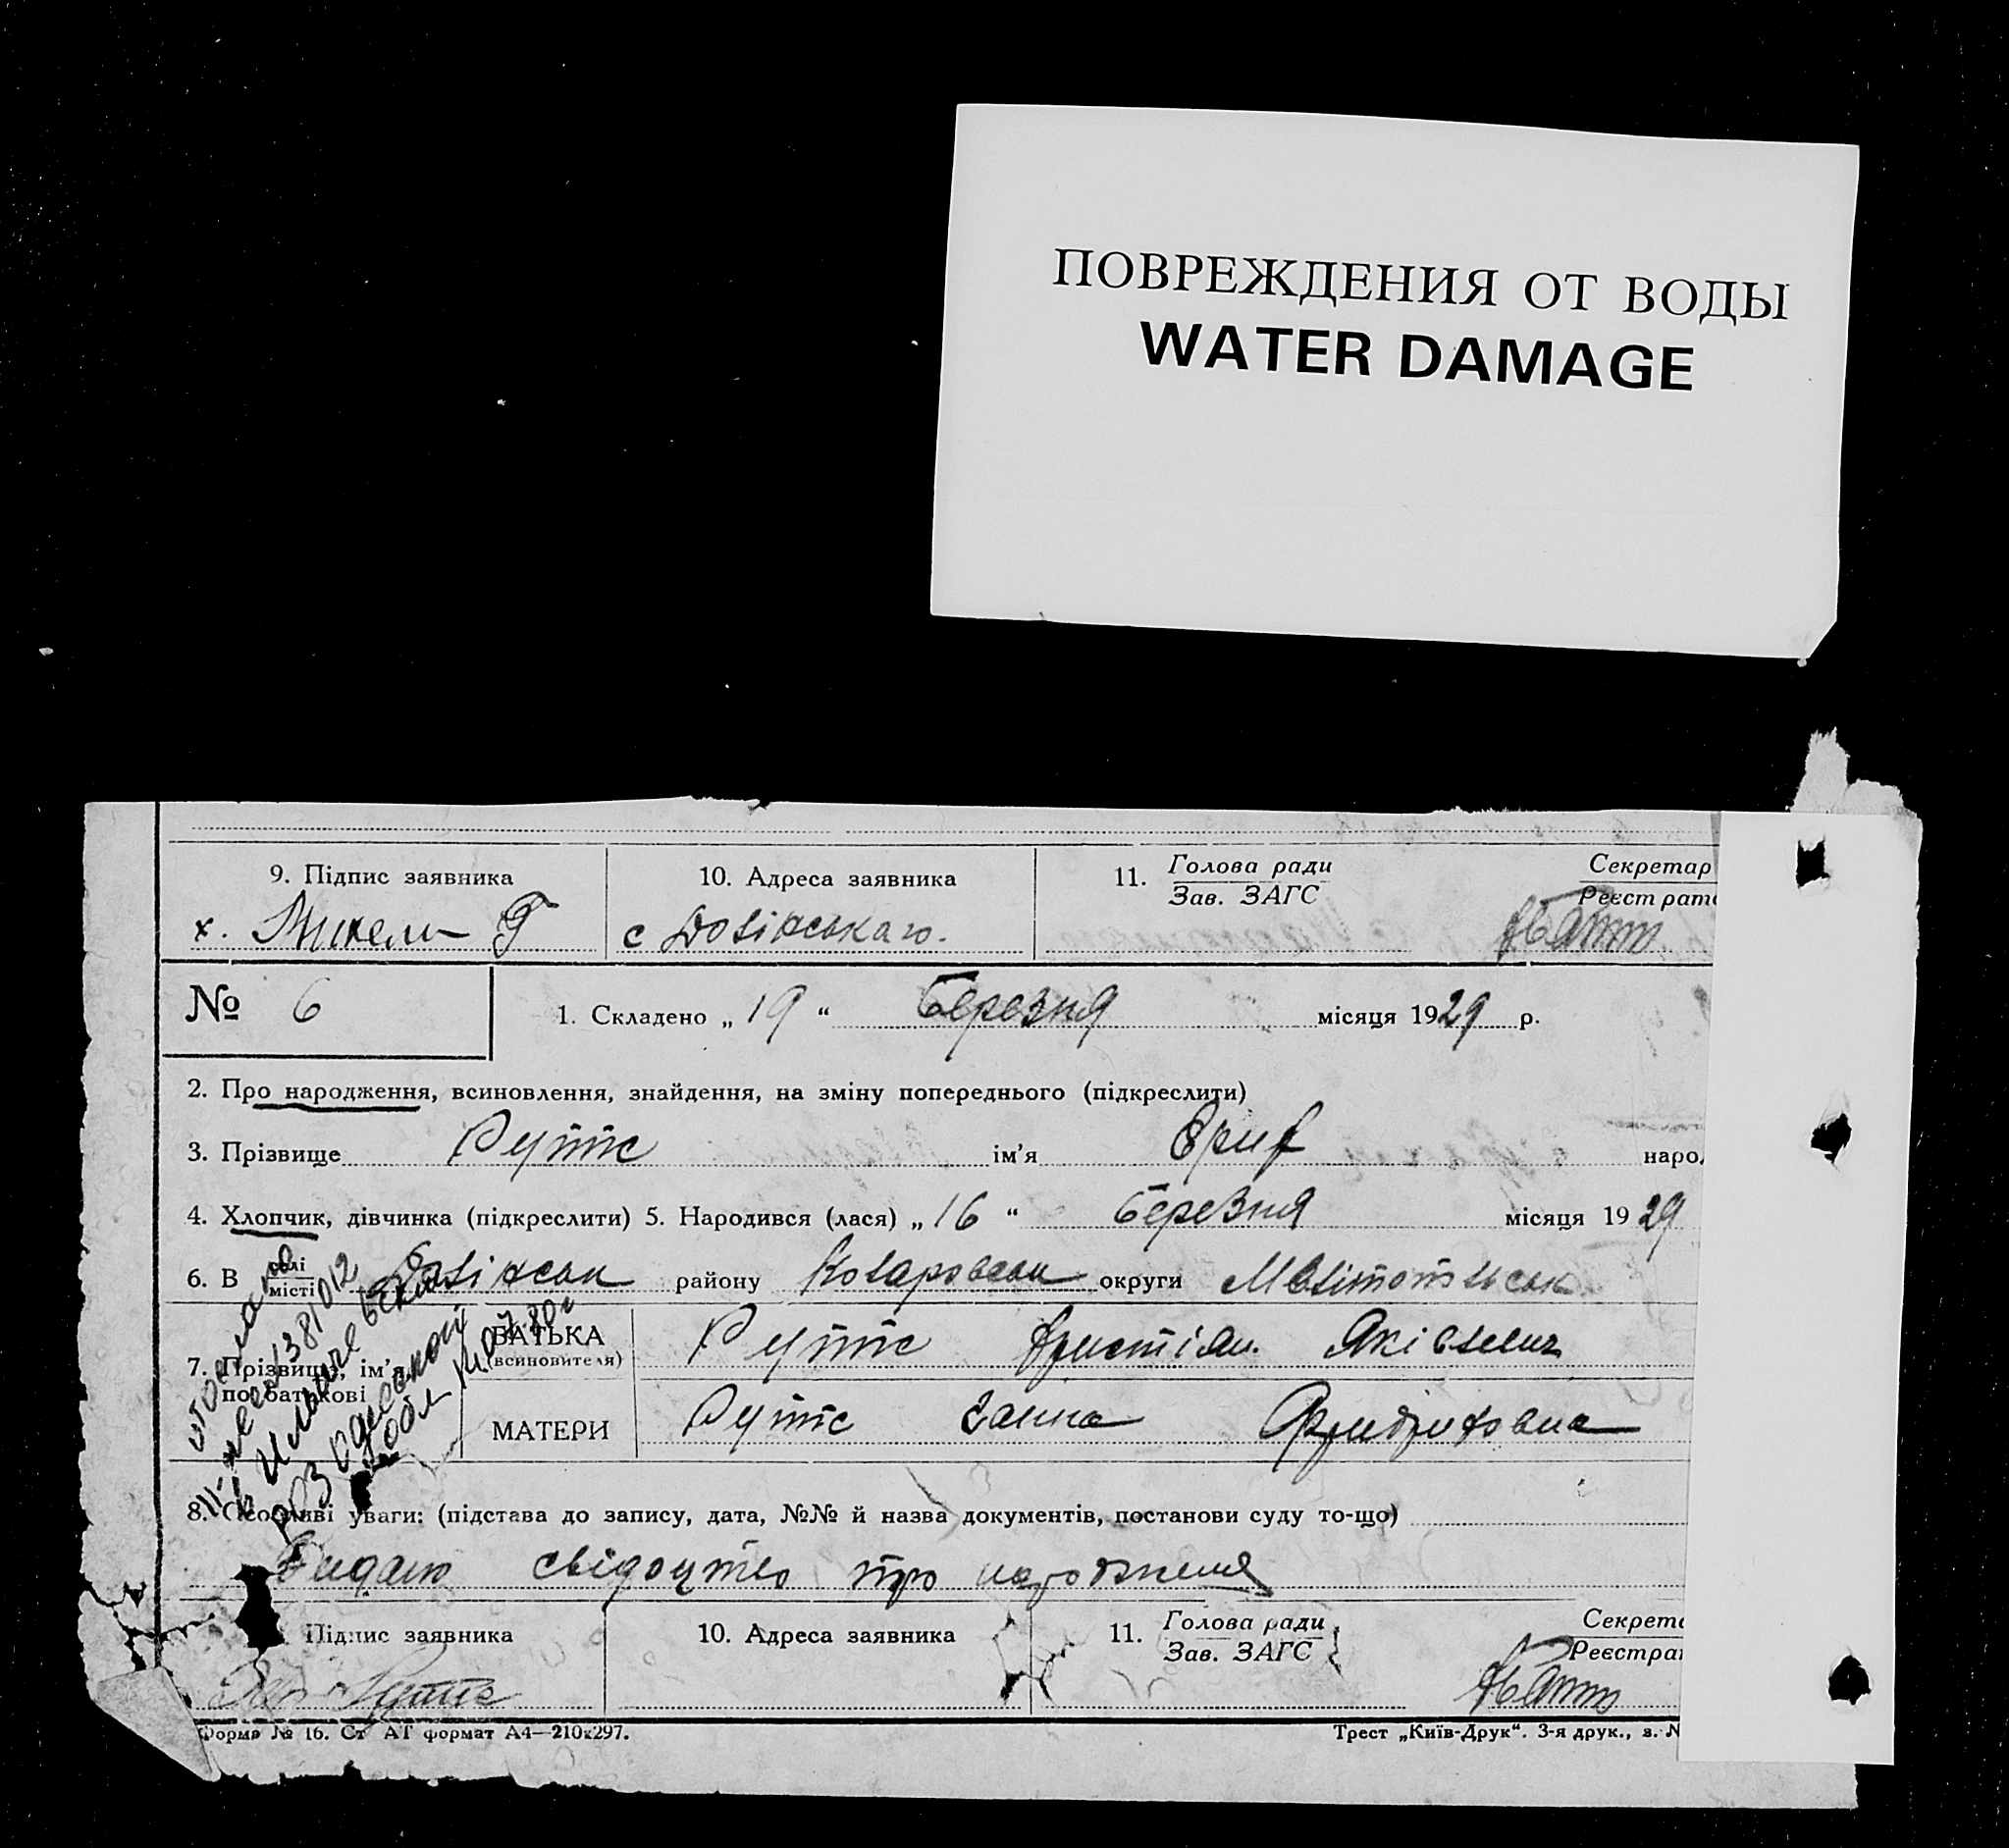 ПОВРЕЖДЕНИЯ ОТ ВОДЫ
WATER DAMAGE
9. Підпис заявника
10. Адреса заявника
11. Голова ради
Зав. ЗАГС
Секретар
Реєстрато
х.
с
№ 6
1. Складено „ 19 “ Березня місяця 1929 р.
2. Про народження, всиновлення, знайдення, на зміну попереднього (підкреслити)
3. Прізвище Рутте ім'я Ерих наро
4. Хлопчик, дівчинка (підкреслити) 5. Народився (лася) „ 16 “ Березня місяця 1929
6. В селі
місті
району округи
7. Прізвище, ім'я,
по батькові
БАТЬКА
(всиновителя)
Рутте Христіан Яківлевич
МАТЕРИ
Рутте Ганна Фридриховна
8. Особливі уваги: (підстава до запису, дата, №№ й назва документів, постанови суду то-що)
Видано свідоцтво про народження
Підпис заявника
10. Адреса заявника
11. Голова ради
Зав. ЗАГС
Секрета
Реєстра
Рутте
Форма № 16. Ст АТ формат А4—210x297.
Трест „Київ-Друк“. 3-я друк., з. №